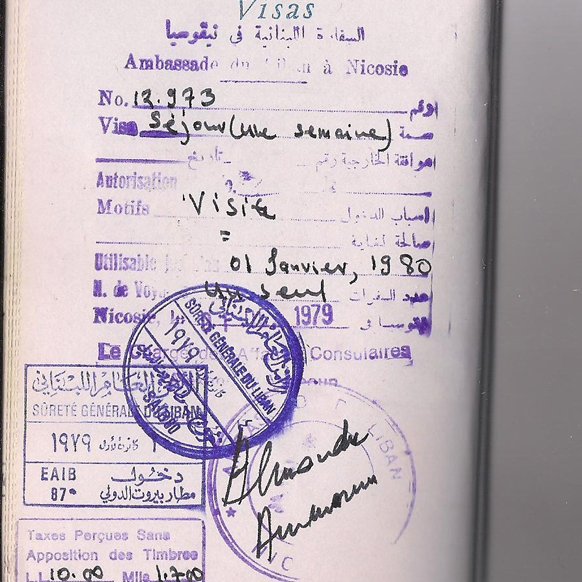 Visas
السفارة اللبنانية في نيقوسيا
Ambassade du Liban à Nicosie
No. 12.973 رقم
Visa Séjour (une semaine) سمة
موافقة الخارجية رقم تاريخ
Autorisation
Motifs Visite اسباب الدخول
صالحة لغاية
Utilisable 01 Janvier, 1980
N. de Voya un seul عدد السفرات
Nicosie, 1979 نيقوسيا في
Le Chargé des Affaires Consulaires
SÛRETÉ GÉNÉRALE DU LIBAN
١٩٧٩
الأمن العام اللبناني
SÛRETÉ GÉNÉRALE DU LIBAN
١٩٧٩
EAIB
87
دخول
مطار بيروت الدولي
LIBAN
Taxes Perçues Sans
Apposition des Timbres
L.L. 10.00 Mils 1.700